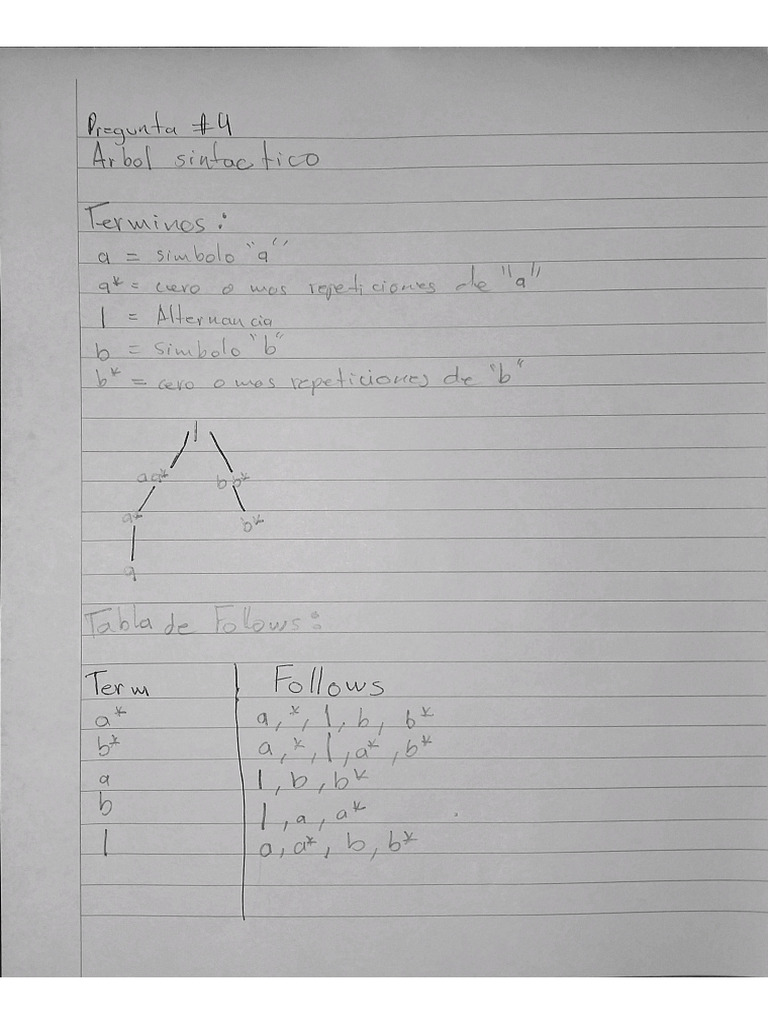 Pregunta #4
Arbol sintactico
Terminos:
a = simbolo "a"
a* = cero o mas repeticiones de "a"
| = Alternancia
b = simbolo "b"
b* = cero o mas repeticiones de "b"
|
aa* bb*
a* b*
a
Tabla de Follows:
Term Follows
a* a, *, |, b, b*
b* a, *, |, a*, b*
a |, b, b*
b |, a, a*
| a, a*, b, b*